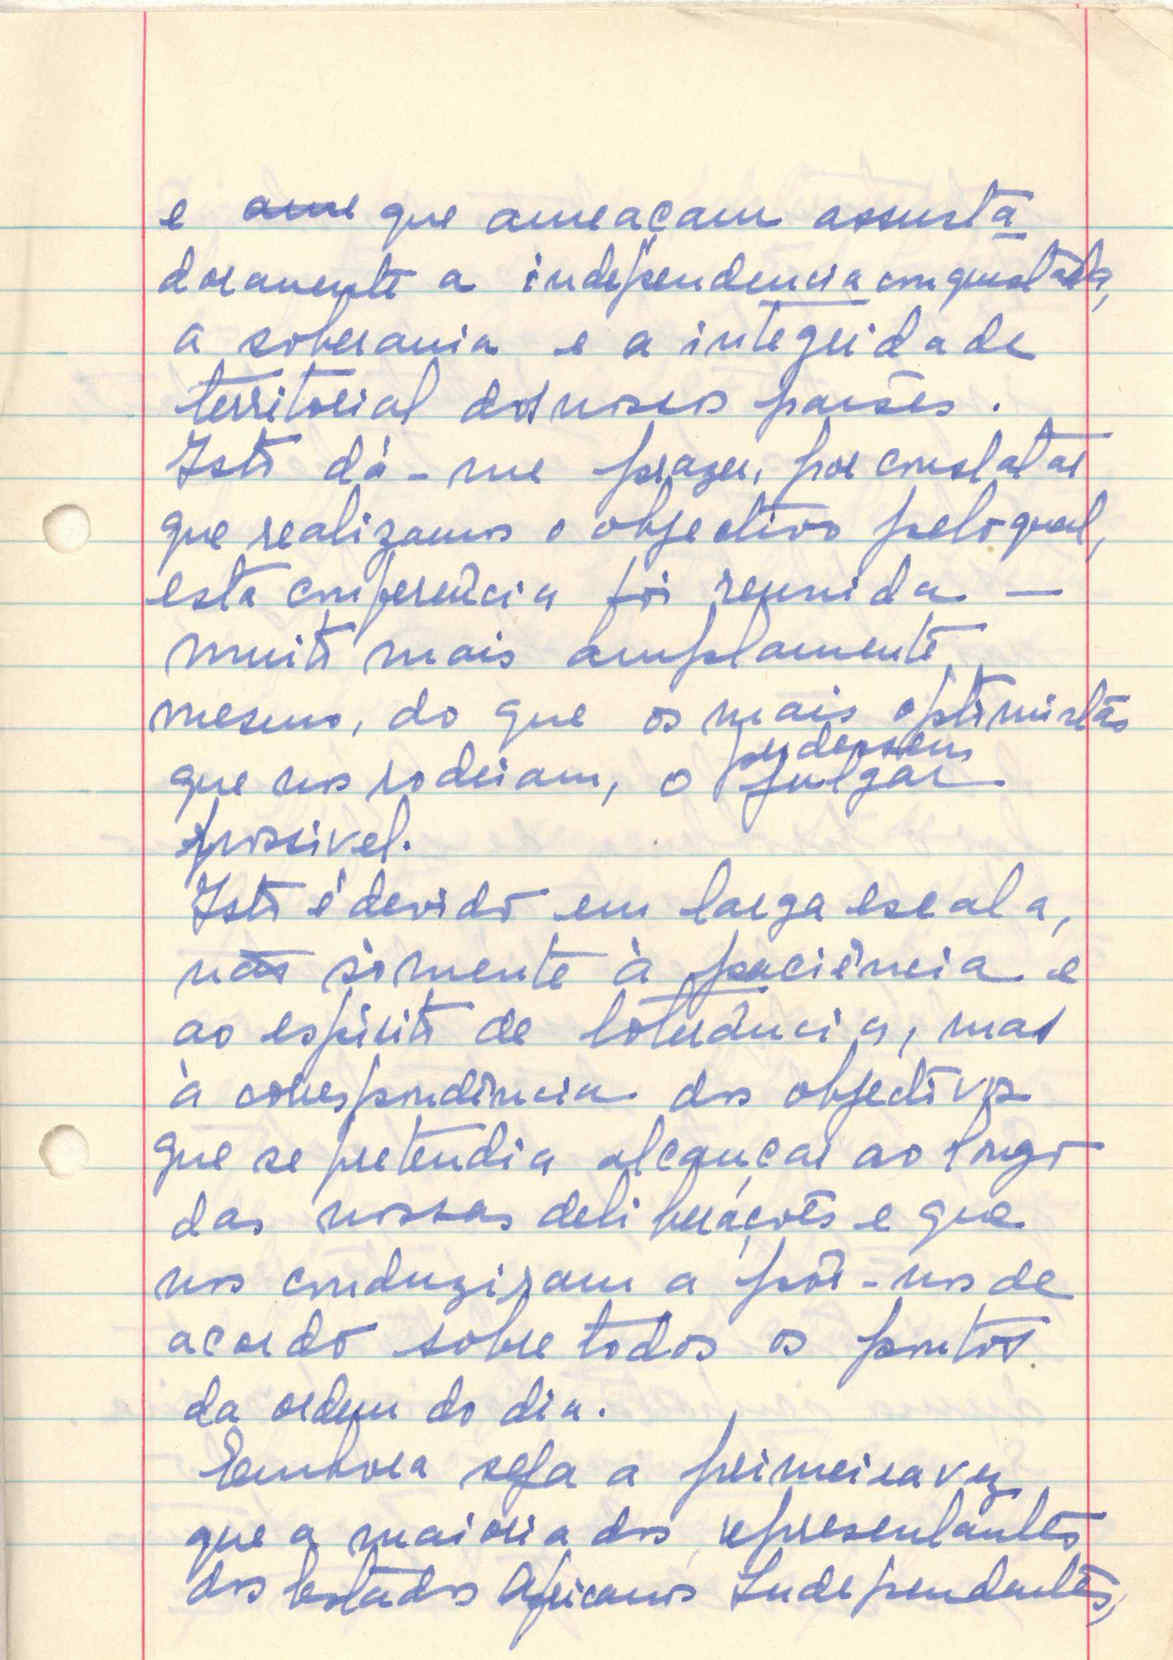 e ame que ameaçam assusta
doramente a independencia conquistada,
a soberania e a integridade
territorial dos nossos paises.
Isto dá-me prazer, por constatar
que realizamos o objectivo pelo qual,
esta conferência foi reunida —
muito mais amplamente
mesmo, do que os mais optimistas
pudessem
que nos rodeiam, o julgar
possivel.
Isto é devido em larga escala,
não sòmente à paciência e
ao espirito de tolerância, mas
à correspondência dos objectivos
que se pretendia alcançar ao longo
das nossas deliberações e que
nos conduziram a pôr-nos de
acordo sobre todos os pontos
da ordem do dia.
Embora seja a primeira vez
que a maioria dos representantes
dos Estados Africanos Independentes,